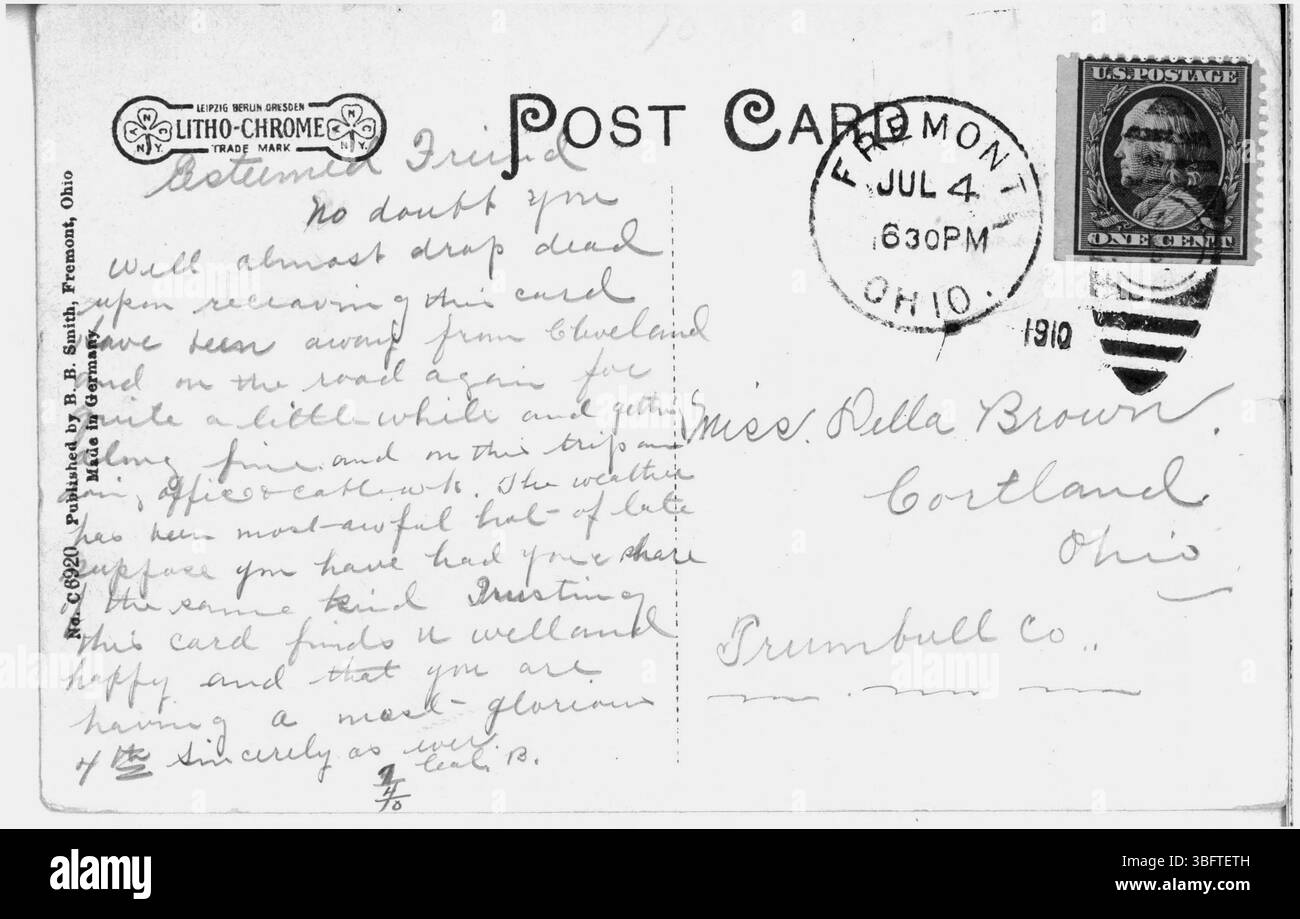 LEIPZIG BERLIN DRESDEN
LITHO-CHROME
TRADE MARK
N.Y.
N.Y.
POST CARD
FREMONT
JUL 4
630PM
OHIO.
1910
U.S. POSTAGE
ONE CENT
No. C6920 Published by B. B. Smith, Fremont, Ohio
Made in Germany
Esteemed Friend
No doubt you
will almost drop dead
upon receaving this card
have been away from Cleveland
and on the road again for
quite a little while and getting
along fine and on this trip am
doing office & . The weather
has been most awful hot of late
suppose you have had your share
of the same kind Trusting
this card finds u well and
happy and that you are
having a most glorious
4th Sincerely as ever
B.
7/4/10
Miss. Della Brown.
Cortland
Ohio
Trumbull Co.,
alamy
alamy
alamy
alamy
Image ID: 3BFTETH
www.alamy.com